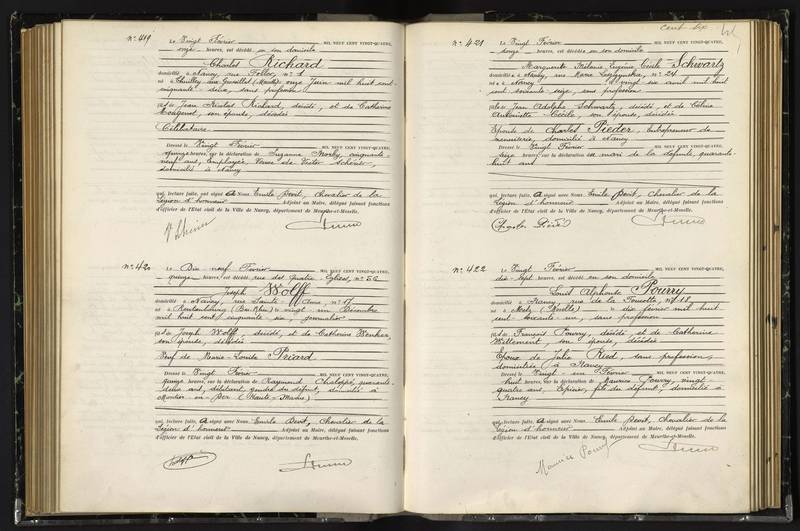 N° 419
Le Vingt Février MIL NEUF CENT VINGT-QUATRE,
onze heures, est décédé en son domicile
Charles Richard
domicilié à Nancy, rue Foller, n° 1
né à onze Juin mil huit cent
cinquante-deux, sans profession
fils de Jean Nicolas Richard, décédé, et de Catherine
Mougenot, son épouse, décédée
Célibataire
Dressé le Vingt Février MIL NEUF CENT VINGT-QUATRE,
heures, sur la déclaration de Suzanne cinquante
neuf ans, employée, Veuve de Victor
domiciliée à Nancy
qui, lecture faite, ont signé avec Nous Emile Chevalier de la
Légion d'honneur Adjoint au Maire, délégué faisant fonctions
d'officier de l'État civil de la Ville de Nancy, département de Meurthe-et-Moselle.
N° 420
Le Dix neuf Février MIL NEUF CENT VINGT-QUATRE,
quinze heures, est décédé rue des Quatre Églises, n° 56
Joseph Wolff
domicilié à Nancy, rue Sainte Anne, n° 17
né à (Bas-Rhin) le vingt un Décembre
mil huit cent cinquante six, journalier
fils de Joseph Wolff, décédé, et de Catherine
son épouse, décédée
Veuf de Marie-Louise Pricard
Dressé le Vingt Février MIL NEUF CENT VINGT-QUATRE,
quinze heures, sur la déclaration de Raymond quarante
deux ans, débitant, gendre du défunt, domicilié à
Montier-en-Der (Haute-Marne)
qui, lecture faite, a signé avec Nous Emile Chevalier de la
Légion d'honneur Adjoint au Maire, délégué faisant fonctions
d'officier de l'État civil de la Ville de Nancy, département de Meurthe-et-Moselle.
cent six
N° 421
Le Vingt Février MIL NEUF CENT VINGT-QUATRE,
heures, est décédée en son domicile
Marguerite Eugénie Cécile Schwartz
domiciliée à Nancy, rue Marie Leszczynska, n° 24
née à Nancy vingt six avril mil huit
cent soixante seize, sans profession
fille de Jean Adolphe Schwartz, décédé, et de Céline
Antoinette son épouse, décédée
Épouse de Charles Pieder, Entrepreneur de
menuiserie, domicilié à Nancy
Dressé le Vingt Février MIL NEUF CENT VINGT-QUATRE,
heures, sur la déclaration du mari de la défunte, quarante-
huit ans
qui, lecture faite, a signé avec Nous Emile Chevalier de la
Légion d'honneur Adjoint au Maire, délégué faisant fonctions
d'officier de l'État civil de la Ville de Nancy, département de Meurthe-et-Moselle.
N° 422
Le Vingt Février MIL NEUF CENT VINGT-QUATRE,
dix-sept heures, est décédé en son domicile
Louis Alphonse Pourry
domicilié à Nancy, rue de la n° 18
né à Metz (Moselle) le dix février mil huit
cent soixante un, sans profession
fils de François Pourry, décédé et de Catherine
son épouse, décédée
Époux de Julie Ried, sans profession,
domiciliée à Nancy
Dressé le Vingt-un Février MIL NEUF CENT VINGT-QUATRE,
huit heures, sur la déclaration de Maurice Pourry, vingt
quatre ans, épicier, fils du défunt, domicilié à
Nancy
qui, lecture faite, a signé avec Nous Emile Chevalier de la
Légion d'honneur Adjoint au Maire, délégué faisant fonctions
d'officier de l'État civil de la Ville de Nancy, département de Meurthe-et-Moselle.
Maurice Pourry